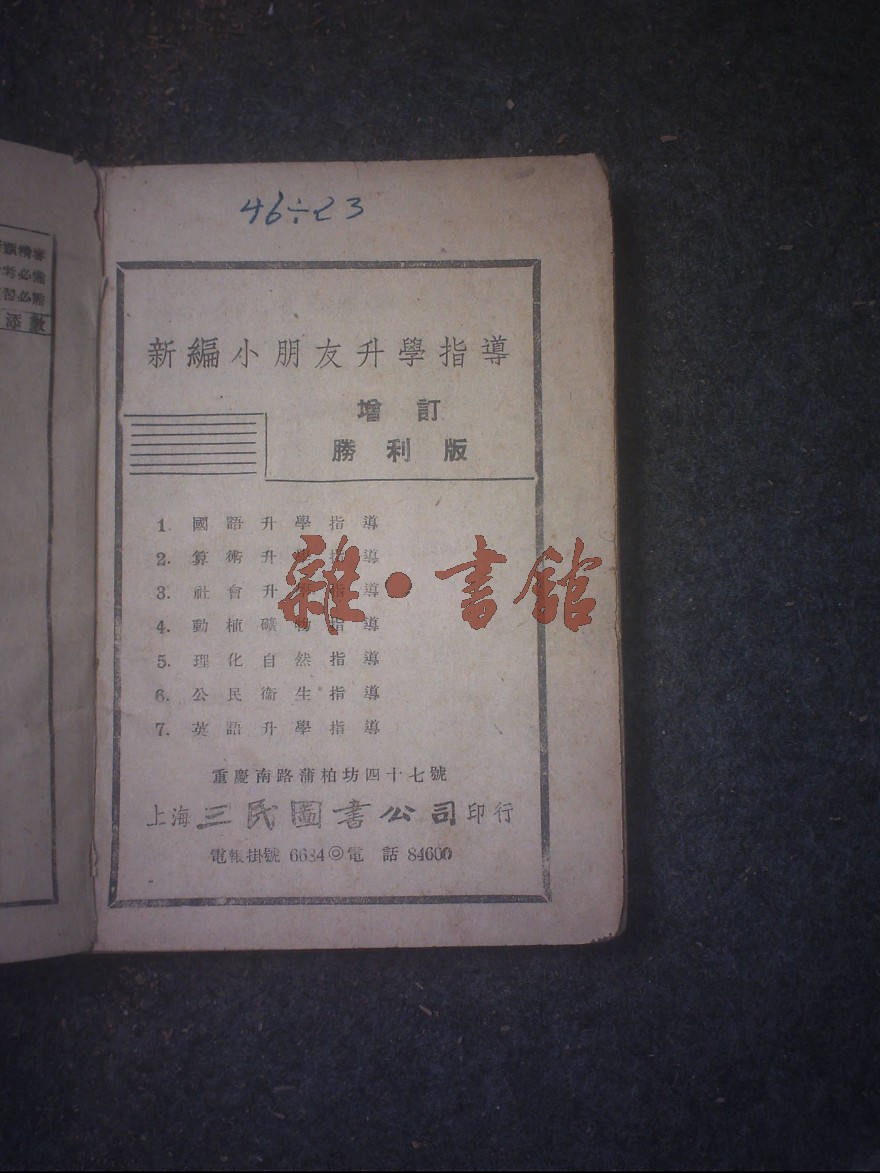 46÷23
新編小朋友升學指導
增訂
勝利版
1. 國語升學指導
2. 算術升學指導
3. 社會升學指導
4. 動植礦物指導
5. 理化自然指導
6. 公民衞生指導
7. 英語升學指導
雜·書館
重慶南路蒲柏坊四十七號
上海三民圖書公司印行
電報掛號 6684◎電話 84600